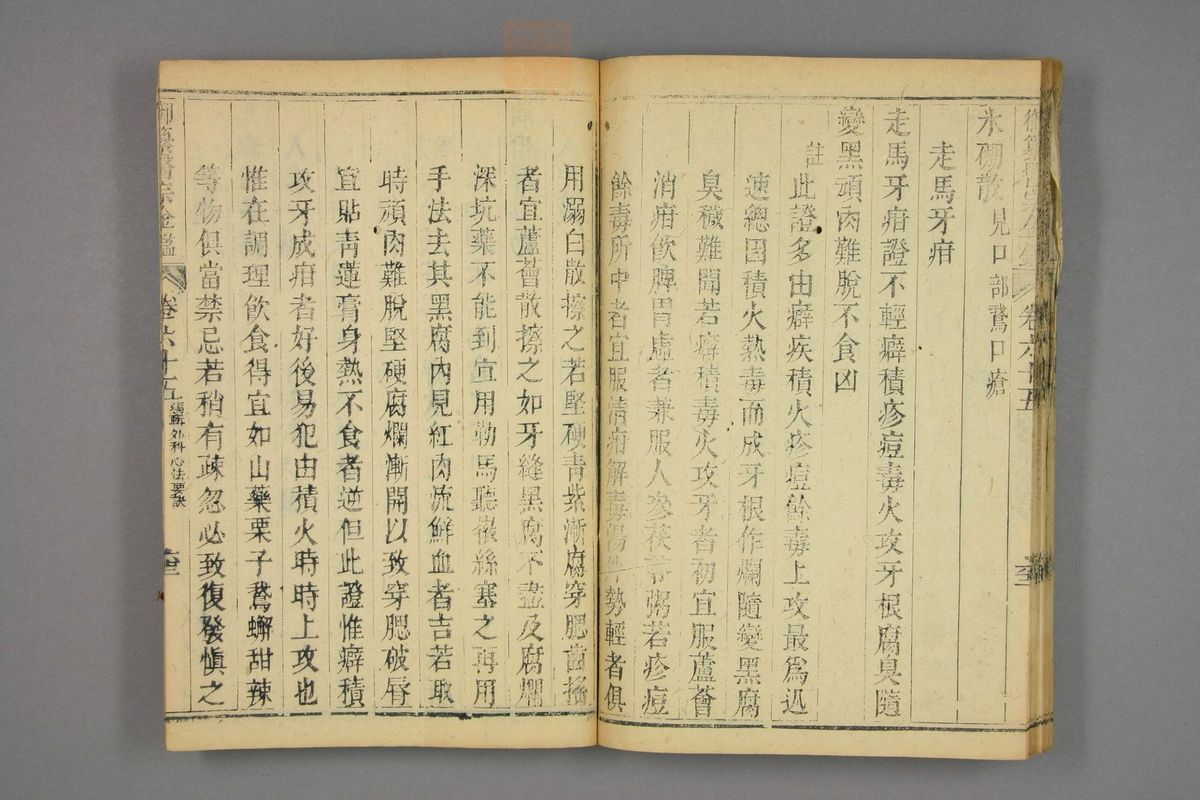 氷硼散見口部鵞口瘡
走馬牙疳
走馬牙疳證不輕癖積疹痘毒火攻牙根腐臭隨
變黑頑肉難脫不食凶
註此證多由癖疾積火疹痘餘毒上攻最爲迅
速總因積火熱毒而成牙根作爛隨變黑腐
臭穢難聞若癖積毒火攻牙者初宜服蘆薈
消疳飲脾胃虛者兼服人參茯苓粥若疹痘
餘毒所中者宜服清疳解毒湯勢輕者俱
卷六十五
用溺白散擦之若堅硬青紫漸腐穿肥齒搖
者宜蘆薈散擦之如牙縫黑腐不盡及腐爛
深坑藥不能到宜用勒馬聽徽絲塞之再用
手法去其黑腐內見紅肉流鮮血者吉若取
時頑肉難脫堅硬腐爛漸開以致穿腮破唇
宜貼青蓮膏身熱不食者逆但此證惟癖積
攻牙成疳者好後易犯由積火時時上攻也
惟在調理飲食得宜如山藥栗子鵞蠏甜辣
等物俱當禁忌若稍有疎忽必致復發愼之
御纂醫宗金鑑 卷六十五 編輯外科心法要訣